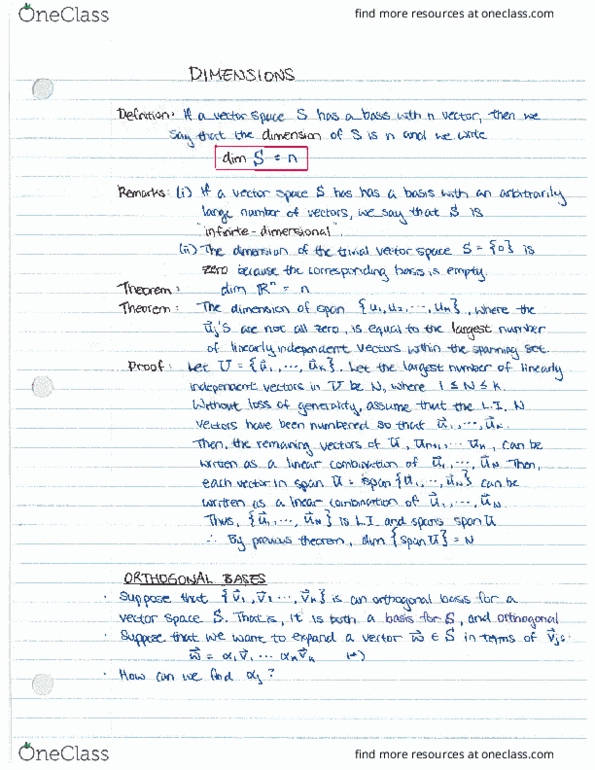 OneClass
find more resources at oneclass.com
DIMENSIONS
Definition: If a vector space S has a basis with n vector, then we
say that the dimension of S is n and we write
dim S = n
Remarks: (i) If a vector space S has has a basis with an arbitrarily
large number of vectors, we say that S is
"infinite-dimensional".
(ii) The dimension of the trivial vector space S = {0} is
zero because the corresponding basis is empty.
Theorem: dim ℝⁿ = n
Theorem: The dimension of span {u₁, u₂, ..., uₙ}, where the
u⃗ⱼ's are not all zero, is equal to the largest number
of linearly independent vectors within the spanning set.
Proof: Let U = {u⃗₁, ..., u⃗ₖ}. Let the largest number of linearly
independent vectors in U be N, where 1 ≤ N ≤ k.
Without loss of generality, assume that the L.I. N
vectors have been numbered so that u⃗₁, ..., u⃗N.
Then, the remaining vectors of U, uN+₁, ... uₖ, can be
written as a linear combination of u⃗₁, ..., u⃗N Then,
each vector in span U = span {u₁, ..., uN} can be
written as a linear combination of u⃗₁, ..., u⃗N.
Thus, {u⃗₁, ..., u⃗N} is L.I. and spans span U
∴ By previous theorem, dim {span U} = N
ORTHOGONAL BASES
· Suppose that {v⃗₁, v⃗₂ ..., v⃗ₖ} is an orthogonal basis for a
vector space S. That is, it is both a basis for S, and orthogonal
· Suppose that we want to expand a vector w⃗ ∈ S in terms of v⃗ⱼ:
w⃗ = α₁v⃗₁ ... αₖv⃗ₖ (*)
· How can we find αⱼ?
OneClass
find more resources at oneclass.com